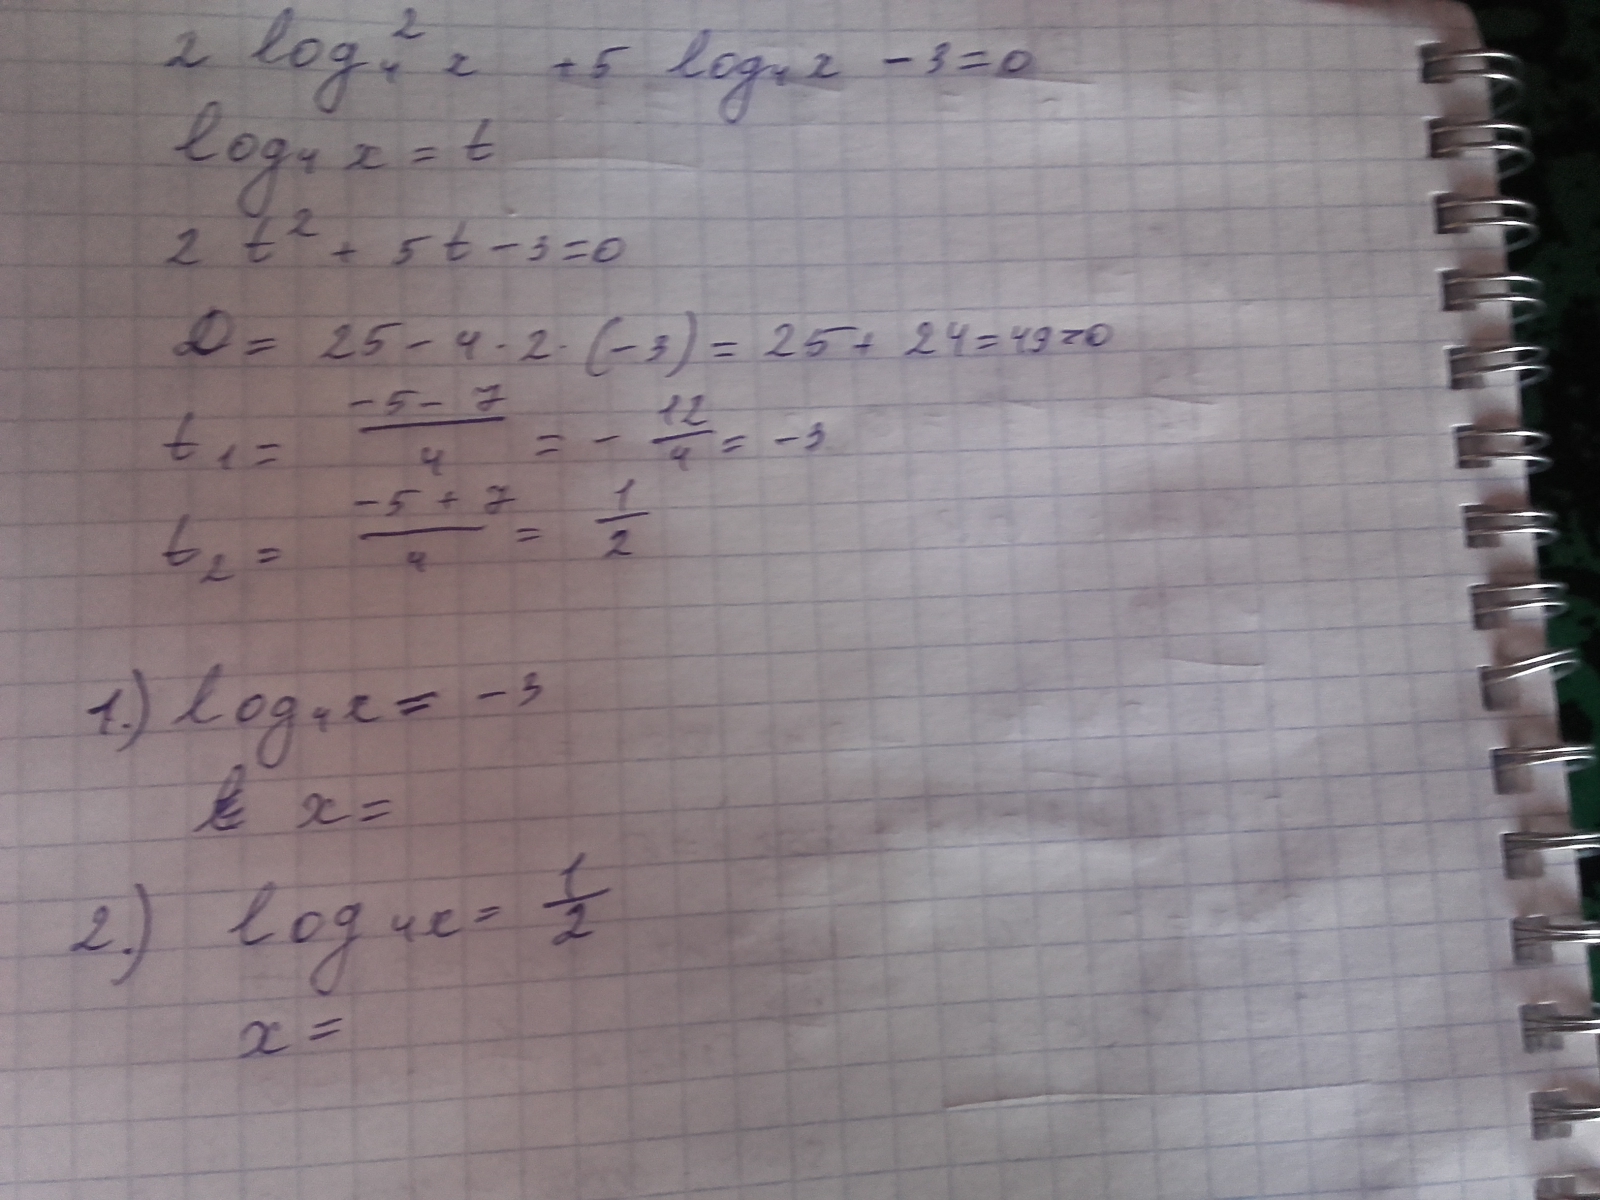 2 log₄² x + 5 log₄ x - 3 = 0
log₄ x = t
2 t² + 5t - 3 = 0
D = 25 - 4 · 2 · (-3) = 25 + 24 = 49 > 0
t₁ = (-5 - 7)/4 = - 12/4 = -3
t₂ = (-5 + 7)/4 = 1/2
1.) log₄ x = -3
x =
2.) log₄ x = 1/2
x =